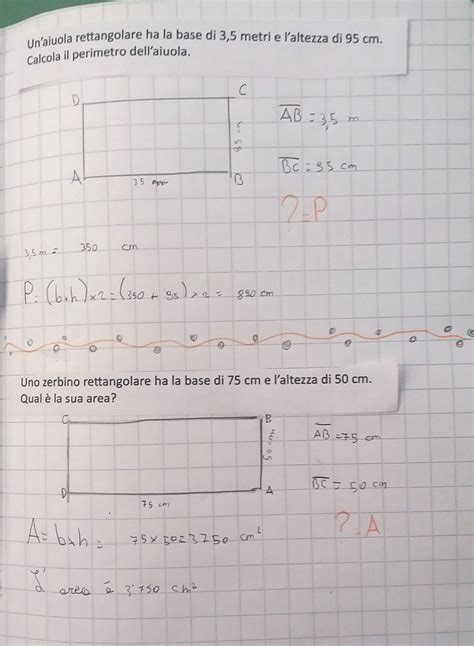 Un'aiuola rettangolare ha la base di 3,5 metri e l'altezza di 95 cm.
Calcola il perimetro dell'aiuola.
D C
AB = 3,5 m
BC = 95 cm
A B
?=P
3,5 m = 350 cm
P=(b+h)×2=(350 + 95)×2= 890 cm
Uno zerbino rettangolare ha la base di 75 cm e l'altezza di 50 cm.
Qual è la sua area?
C B
AB=75 cm
50 cm
D A
BC = 50 cm
75 cm
?=A
A= b×h= 75×50=3750 cm²
L'area è 3750 cm²